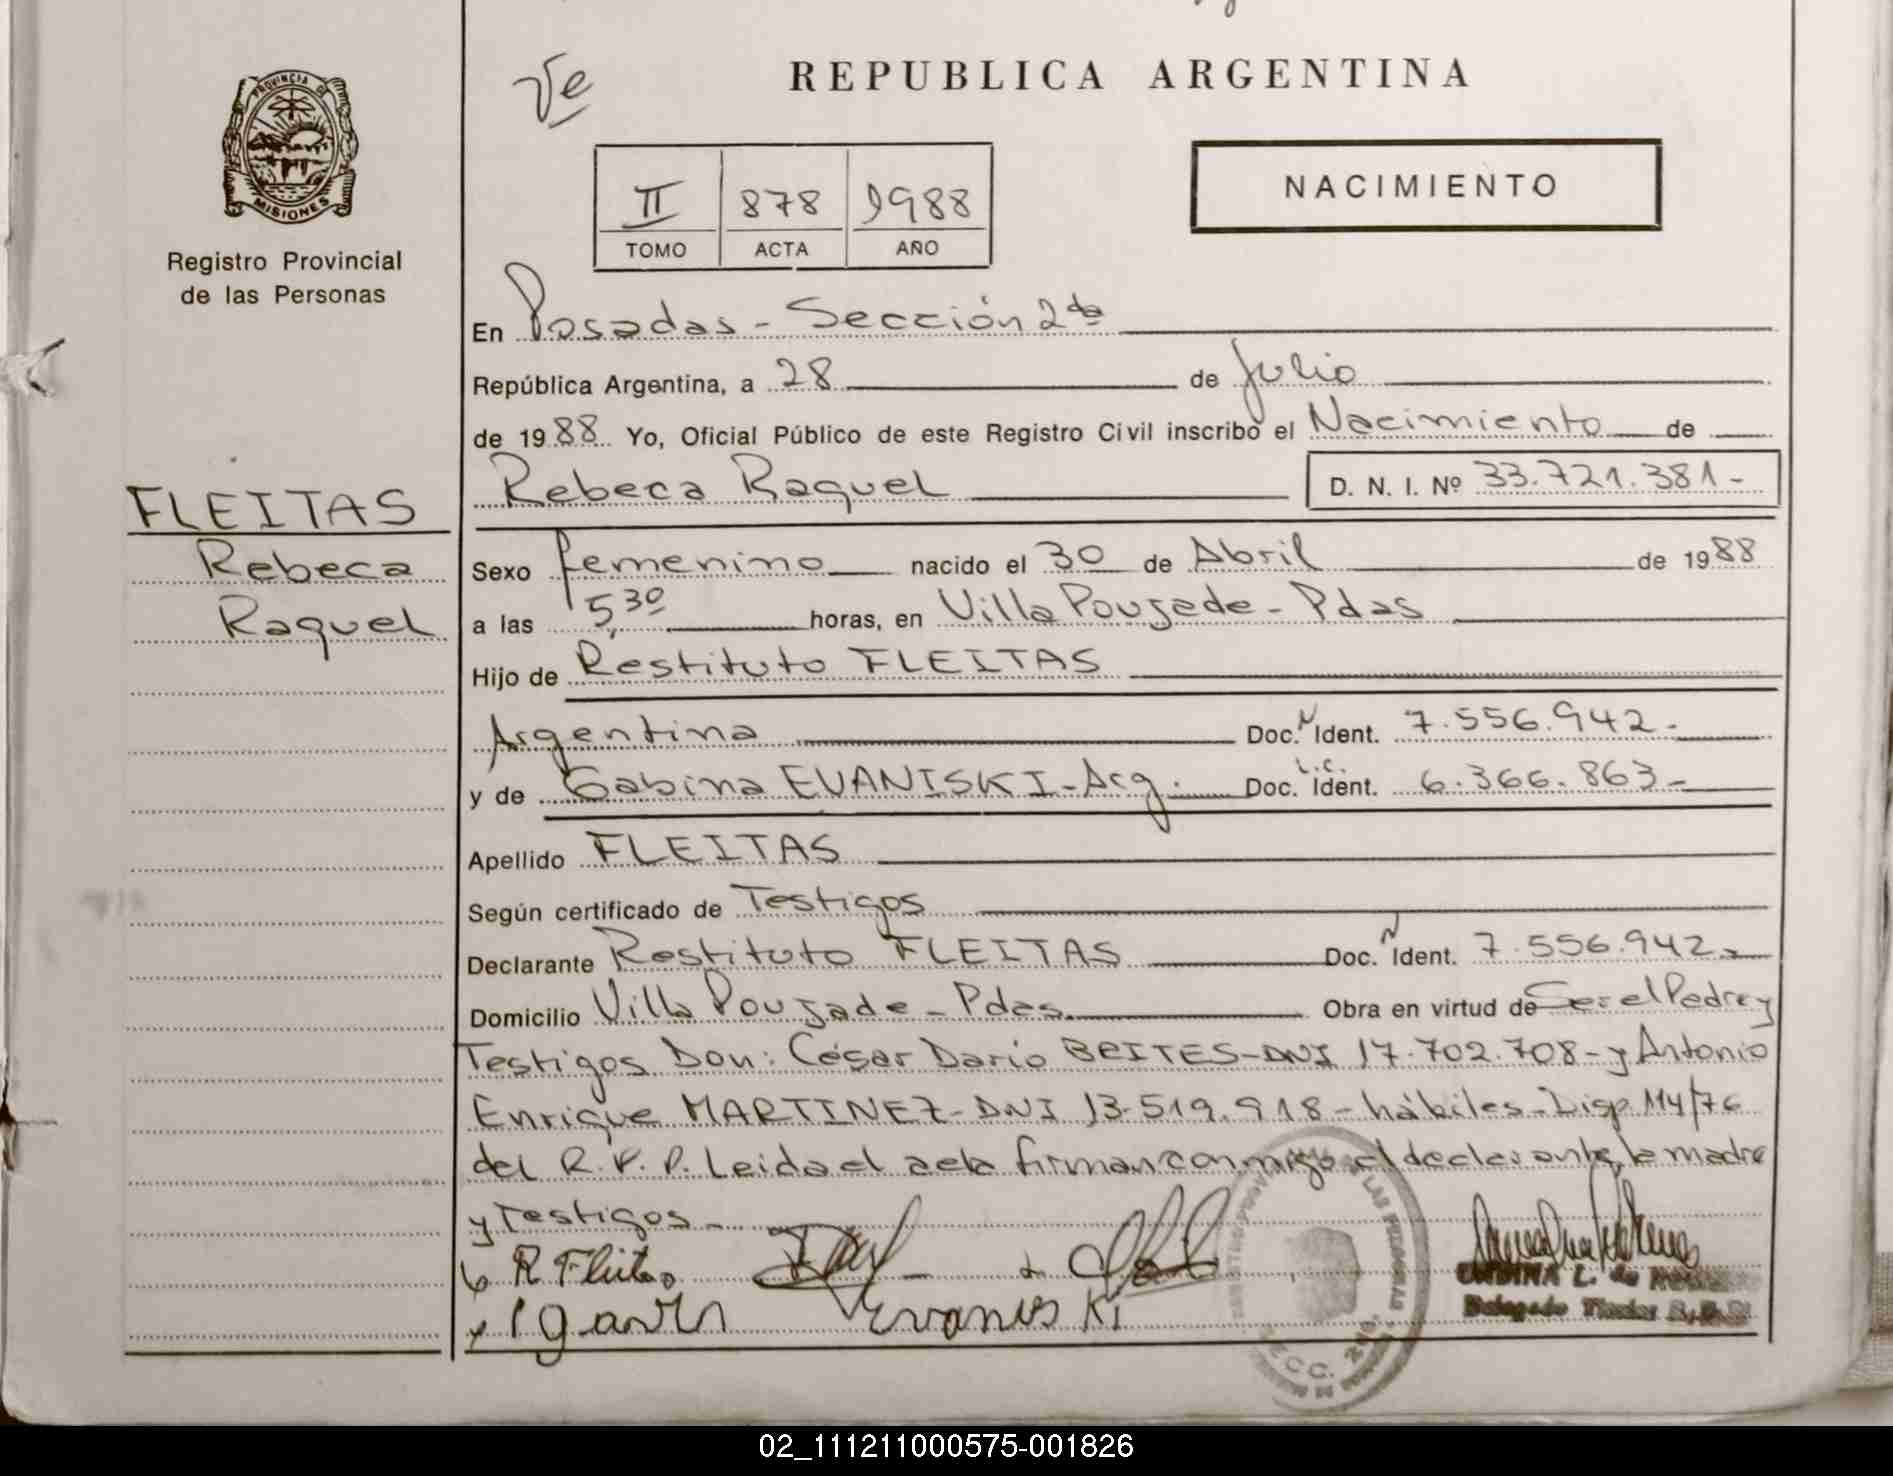 REPUBLICA ARGENTINA
Ve
PROVINCIA DE
MISIONES
Registro Provincial
de las Personas
II 878 1988
TOMO ACTA AÑO
NACIMIENTO
En Posadas - Sección 2da
República Argentina, a 28 de Julio
de 1988 Yo, Oficial Público de este Registro Civil inscribo el Nacimiento de
Rebeca Raquel D. N. I. Nº 33.721.381-
FLEITAS
Rebeca
Raquel
Sexo femenino nacido el 30 de Abril de 1988
a las 5,30 horas, en Villa Poujade - Pdas
Hijo de Restituto FLEITAS
Argentina Doc. Ident. 7.556.942-
y de Sabina EVANISKI - Arg. Doc. L.C. Ident. 6.366.863-
Apellido FLEITAS
Según certificado de Testigos
Declarante Restituto FLEITAS Doc. Ident. 7.556.942-
Domicilio Villa Poujade - Pdas. Obra en virtud de Ser el Padre y
Testigos Don: César Dario BRITES - DNI 17.702.708 - y Antonio
Enrique MARTINEZ - DNI 13.519.918 - hábiles - Disp. 114/76
del R.P.P. Leida el acta firman conmigo el declarante, la madre
y Testigos -
R Fleitas
Evaniski
SECC. 2da
LAS PERSONAS
02_111211000575-001826